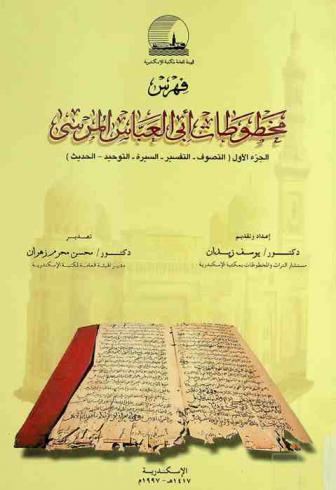 الهيئة العامة لمكتبة الإسكندرية
فهرس
مخطوطات أبى العباس المرسى
الجزء الأول ( التصوف - التفسير - السيرة - التوحيد - الحديث )
إعداد وتقديم
دكتور/ يوسف زيدان
مستشار التراث والمخطوطات بمكتبة الإسكندرية
تصدير
دكتور/ محسن محرم زهران
مدير الهيئة العامة لمكتبة الإسكندرية
الإسكندرية
١٤١٧هـ - ١٩٩٧م